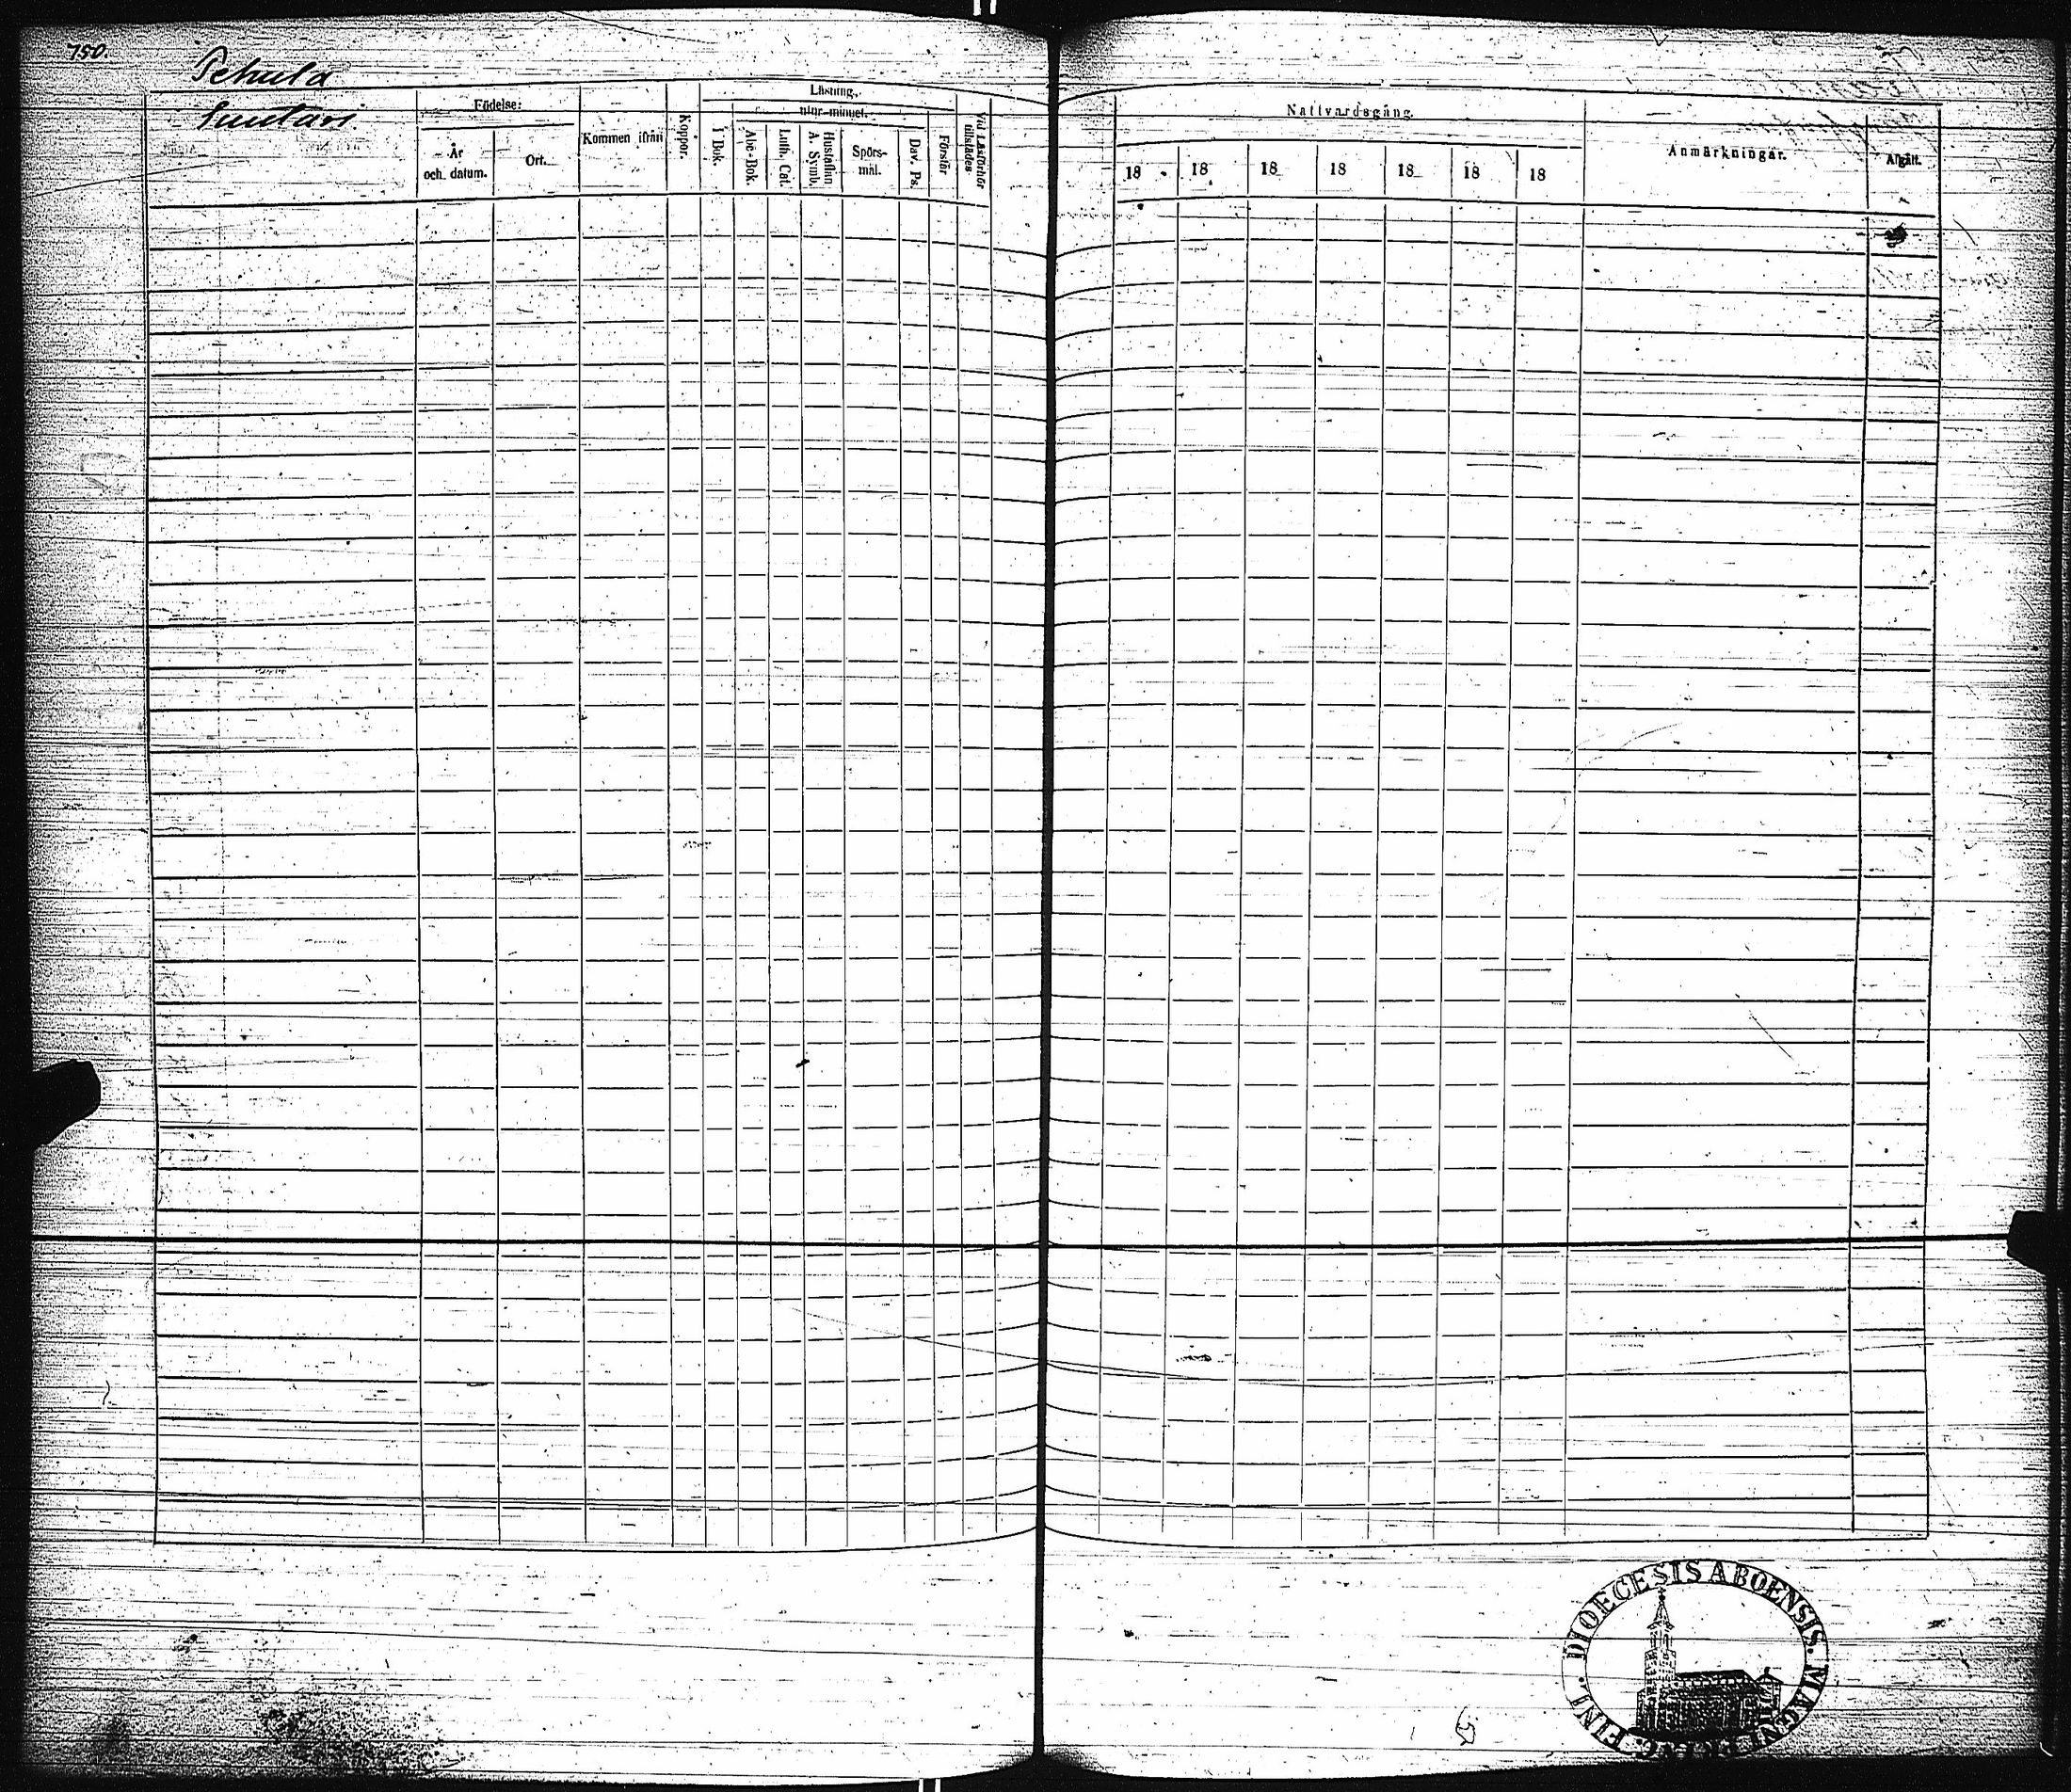 750.
Pehula
Födelse:
År
och. datum.
Ort.
Kommen ifrån
Koppor.
Läsning,
utur-minnet.
I Bok.
Abc-Bok.
Luth. Cat.
Hustaflan
A. Symb.
Spörs-
mål.
Dav. Ps.
Förstår
Vid Läsförhör
tillstädes
Nattvardsgång.
18 18 18 18 18 18 18
Anmärkningar.
Afgått.
DIOECESIS ABOENSIS. MAGNI PRINC. FINL.